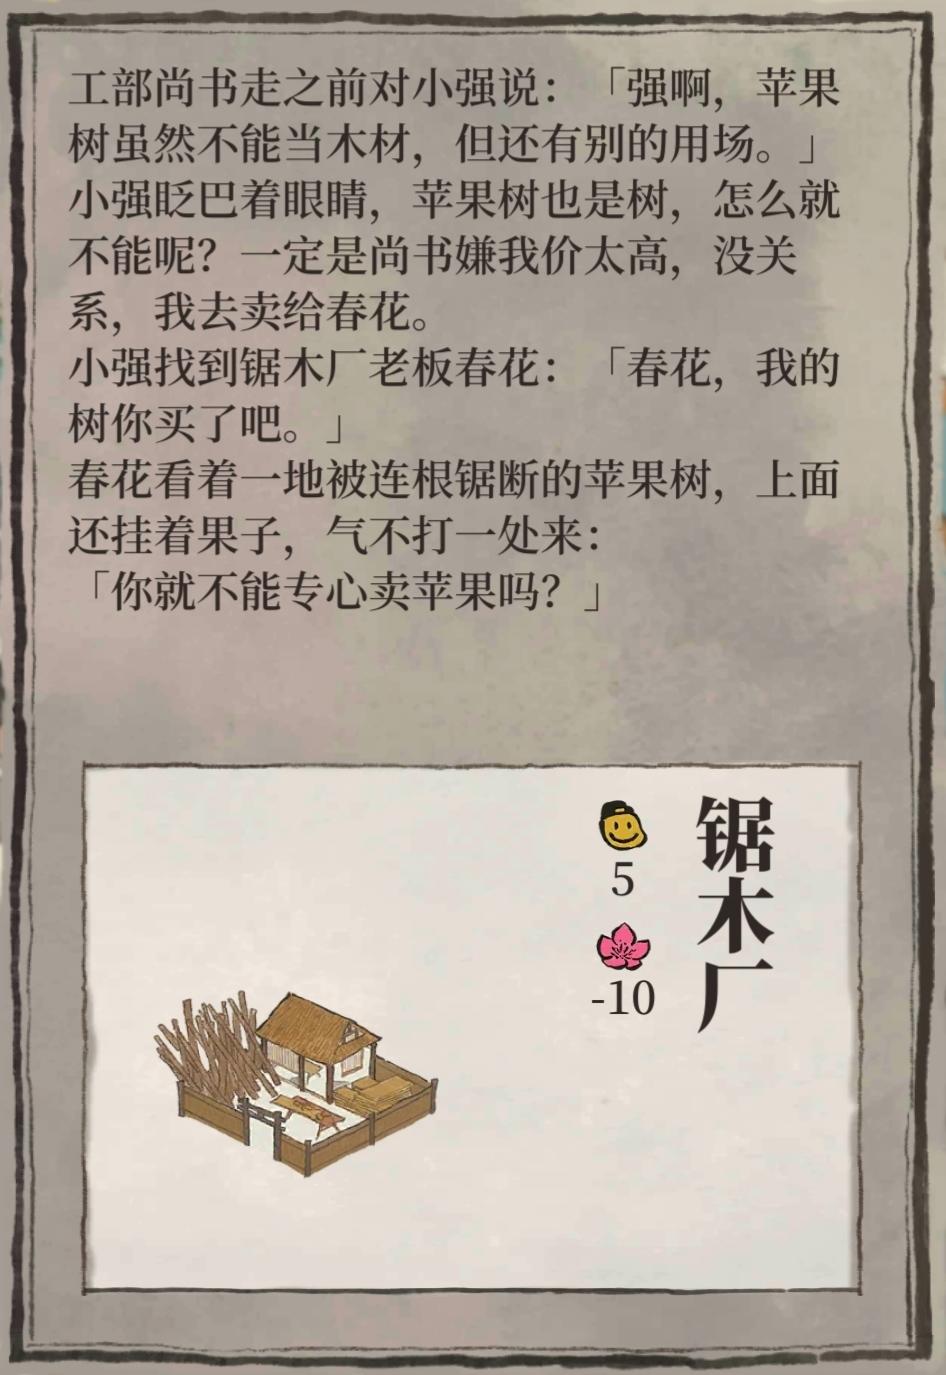 工部尚书走之前对小强说：「强啊，苹果
树虽然不能当木材，但还有别的用场。」
小强眨巴着眼睛，苹果树也是树，怎么就
不能呢？一定是尚书嫌我价太高，没关
系，我去卖给春花。
小强找到锯木厂老板春花：「春花，我的
树你买了吧。」
春花看着一地被连根锯断的苹果树，上面
还挂着果子，气不打一处来：
「你就不能专心卖苹果吗？」
锯木厂
5
-10